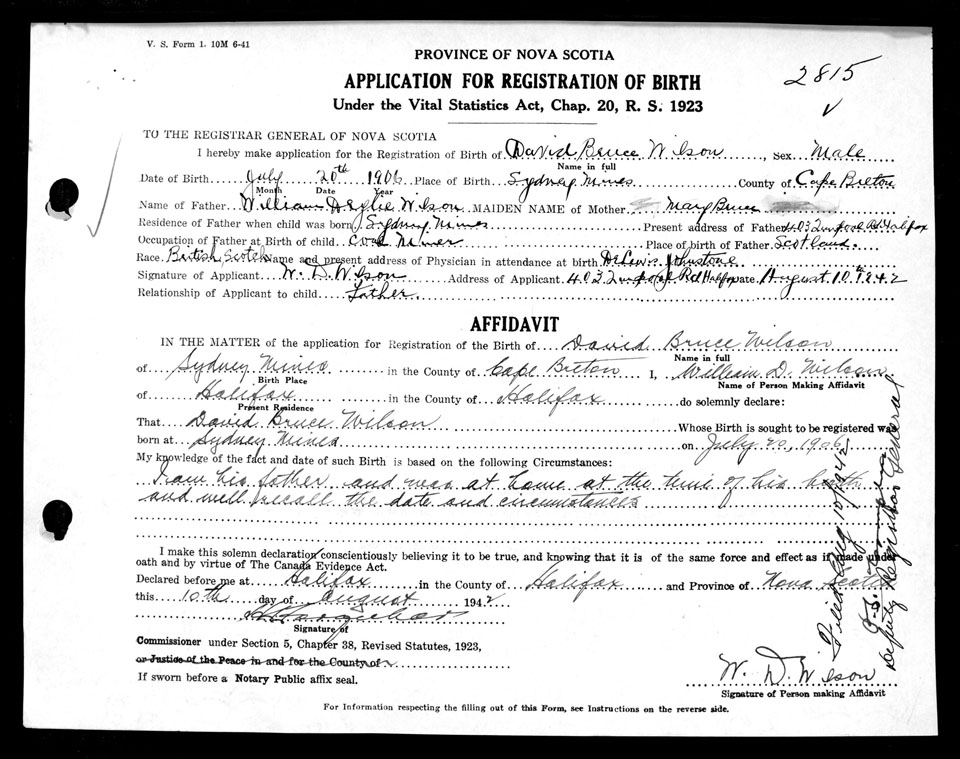 V. S. Form 1. 10M 6-41
PROVINCE OF NOVA SCOTIA
APPLICATION FOR REGISTRATION OF BIRTH
Under the Vital Statistics Act, Chap. 20, R. S. 1923
2815
TO THE REGISTRAR GENERAL OF NOVA SCOTIA
I hereby make application for the Registration of Birth of David Bruce Wilson, Sex Male
Name in full
Date of Birth July 20th 1906 Place of Birth Sydney Mines County of Cape Breton
Month Date Year
Name of Father William Wilson MAIDEN NAME of Mother Mary Bruce
Residence of Father when child was born Sydney Mines Present address of Father 403 Rd Halifax
Occupation of Father at Birth of child. Coal Miner Place of birth of Father Scotland.
Race. British Scotch Name and present address of Physician in attendance at birth Dr Johnstone
Signature of Applicant W. D. Wilson Address of Applicant. 403 Rd Halifax Date August 10th 1942
Relationship of Applicant to child Father
AFFIDAVIT
IN THE MATTER of the application for Registration of the Birth of David Bruce Wilson
Name in full
of Sydney Mines in the County of Cape Breton I, William D. Wilson
Birth Place Name of Person Making Affidavit
of Halifax in the County of Halifax do solemnly declare:
Present Residence
That David Bruce Wilson Whose Birth is sought to be registered was
born at Sydney Mines on July 20, 1906
My knowledge of the fact and date of such Birth is based on the following Circumstances:
I am his father and was at home at the time of his birth
and well recall the date and circumstances
I make this solemn declaration conscientiously believing it to be true, and knowing that it is of the same force and effect as if made under
oath and by virtue of The Canada Evidence Act.
Declared before me at Halifax in the County of Halifax and Province of Nova Scotia
this 10th day of August 1942
Signature of
Commissioner under Section 5, Chapter 38, Revised Statutes, 1923,
or Justice of the Peace in and for the County of
If sworn before a Notary Public affix seal.
W. D. Wilson
Signature of Person making Affidavit
For Information respecting the filling out of this Form, see Instructions on the reverse side.
Filed Aug 10/1942
Deputy Registrar General